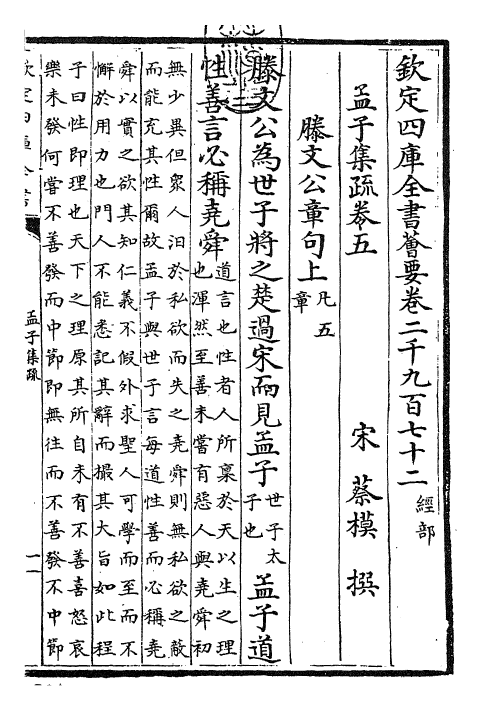 欽定四庫全書薈要卷二千九百七十二 經部
孟子集疏卷五
宋 蔡模 撰
滕文公章句上 凡五章
滕文公為世子將之楚過宋而見孟子 世子太子也 孟子道
性善言必稱堯舜 道言也性者人所稟於天以生之理也渾然至善未嘗有惡人與堯舜初
無少異但衆人汨於私欲而失之堯舜則無私欲之蔽
而能充其性爾故孟子與世子言每道性善而必稱堯
舜以實之欲其知仁義不假外求聖人可學而至而不
懈於用力也門人不能悉記其辭而撮其大旨如此程
子曰性即理也天下之理原其所自未有不善喜怒哀
樂未發何嘗不善發而中節即無往而不善發不中節
欽定四庫全書
孟子集疏
一